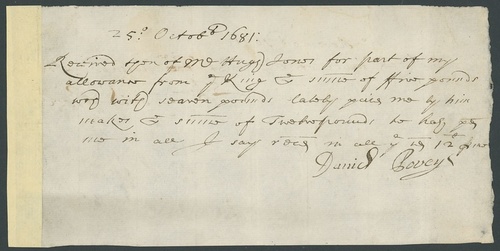 25º Octobr 1681:
Received then of Mr Hugh Jones for part of my
allowance from ye King ye summe of five pounds
wch with seaven pounds lately paid me by him
makes ye summe of Twelve pounds he has pd
me in all I say recd in all
Daniel Povey